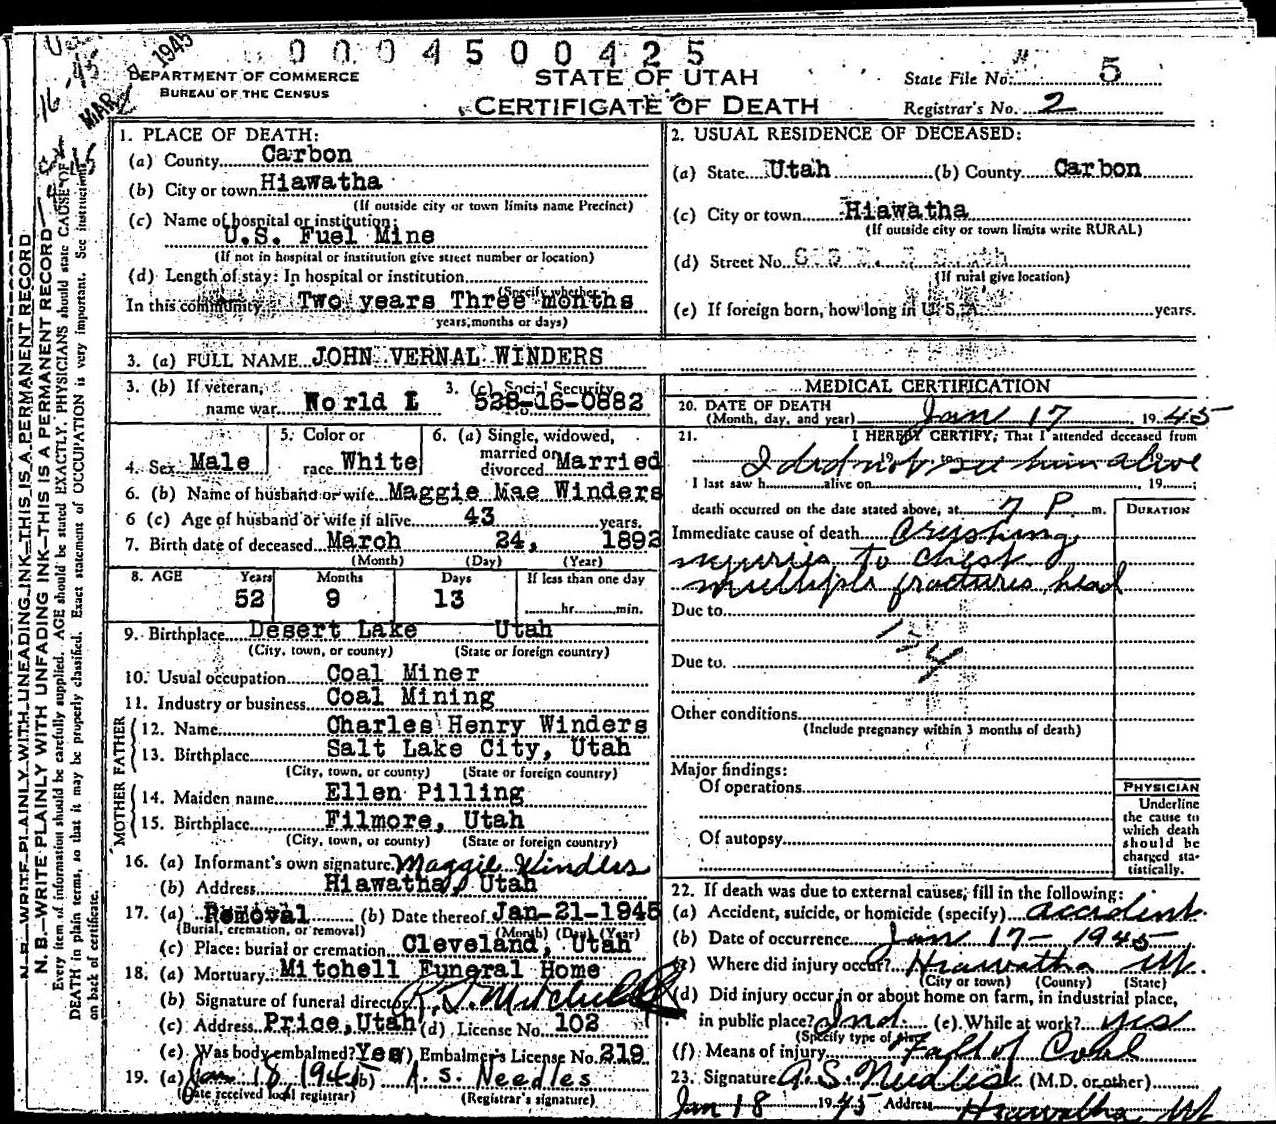 0004500425
MAR 1945
DEPARTMENT OF COMMERCE
BUREAU OF THE CENSUS
STATE OF UTAH
CERTIFICATE OF DEATH
State File No. 5
Registrar's No. 2
N. B.—WRITE PLAINLY WITH UNFADING INK—THIS IS A PERMANENT RECORD
N. B.—WRITE PLAINLY WITH UNFADING INK—THIS IS A PERMANENT RECORD
Every item of information should be carefully supplied. AGE should be stated EXACTLY. PHYSICIANS should state CAUSE OF
DEATH in plain terms, so that it may be properly classified. Exact statement of OCCUPATION is very important. See instructions
on back of certificate.
1. PLACE OF DEATH:
(a) County Carbon
(b) City or town Hiawatha
(If outside city or town limits name Precinct)
(c) Name of hospital or institution:
U.S. Fuel Mine
(If not in hospital or institution give street number or location)
(d) Length of stay: In hospital or institution
(Specify whether
In this community Two years Three months
years, months or days)
2. USUAL RESIDENCE OF DECEASED:
(a) State Utah (b) County Carbon
(c) City or town Hiawatha
(If outside city or town limits write RURAL)
(d) Street No.
(If rural give location)
(e) If foreign born, how long in U. S. A. years.
3. (a) FULL NAME JOHN VERNAL WINDERS
3. (b) If veteran, name war World I
3. (c) Social Security No. 528-16-0882
4. Sex Male
5. Color or race White
6. (a) Single, widowed, married or divorced Married
6. (b) Name of husband or wife Maggie Mae Winders
6 (c) Age of husband or wife if alive 43 years.
7. Birth date of deceased March 24, 1892
(Month) (Day) (Year)
8. AGE Years Months Days If less than one day
52 9 13 hr. min.
9. Birthplace Desert Lake Utah
(City, town, or county) (State or foreign country)
10. Usual occupation Coal Miner
11. Industry or business Coal Mining
FATHER
12. Name Charles Henry Winders
13. Birthplace Salt Lake City, Utah
(City, town, or county) (State or foreign country)
MOTHER
14. Maiden name Ellen Pilling
15. Birthplace Filmore, Utah
(City, town, or county) (State or foreign country)
16. (a) Informant's own signature Maggie Winders
(b) Address Hiawatha, Utah
17. (a) Removal (b) Date thereof Jan-21-1945
(Burial, cremation, or removal) (Month) (Day) (Year)
(c) Place: burial or cremation Cleveland, Utah
18. (a) Mortuary Mitchell Funeral Home
(b) Signature of funeral director R. J. Mitchell
(c) Address Price, Utah (d) License No. 102
(e) Was body embalmed? Yes Embalmer's License No. 219
19. (a) Jan 18, 1945 (b) A. S. Needles
(Date received local registrar) (Registrar's signature)
MEDICAL CERTIFICATION
20. DATE OF DEATH
(Month, day, and year) Jan 17 1945
21. I HEREBY CERTIFY, That I attended deceased from
19 to 19
I did not see him alive
I last saw h alive on , 19 ;
death occurred on the date stated above, at 7 P. m.
DURATION
Immediate cause of death Crushing
injuries to chest
multiple fractures, head
Due to
Due to
Other conditions
(Include pregnancy within 3 months of death)
Major findings:
Of operations
Of autopsy
PHYSICIAN
Underline
the cause to
which death
should be
charged sta-
tistically.
22. If death was due to external causes, fill in the following:
(a) Accident, suicide, or homicide (specify) accident
(b) Date of occurrence Jan 17 - 1945
Where did injury occur? Hiawatha Ut.
(City or town) (County) (State)
(d) Did injury occur in or about home on farm, in industrial place,
in public place? Ind. (e) While at work? yes
(Specify type of place)
(f) Means of injury Fall of Coal
23. Signature A. S. Needles (M.D. or other)
Jan 18 1945 Address Hiawatha Ut